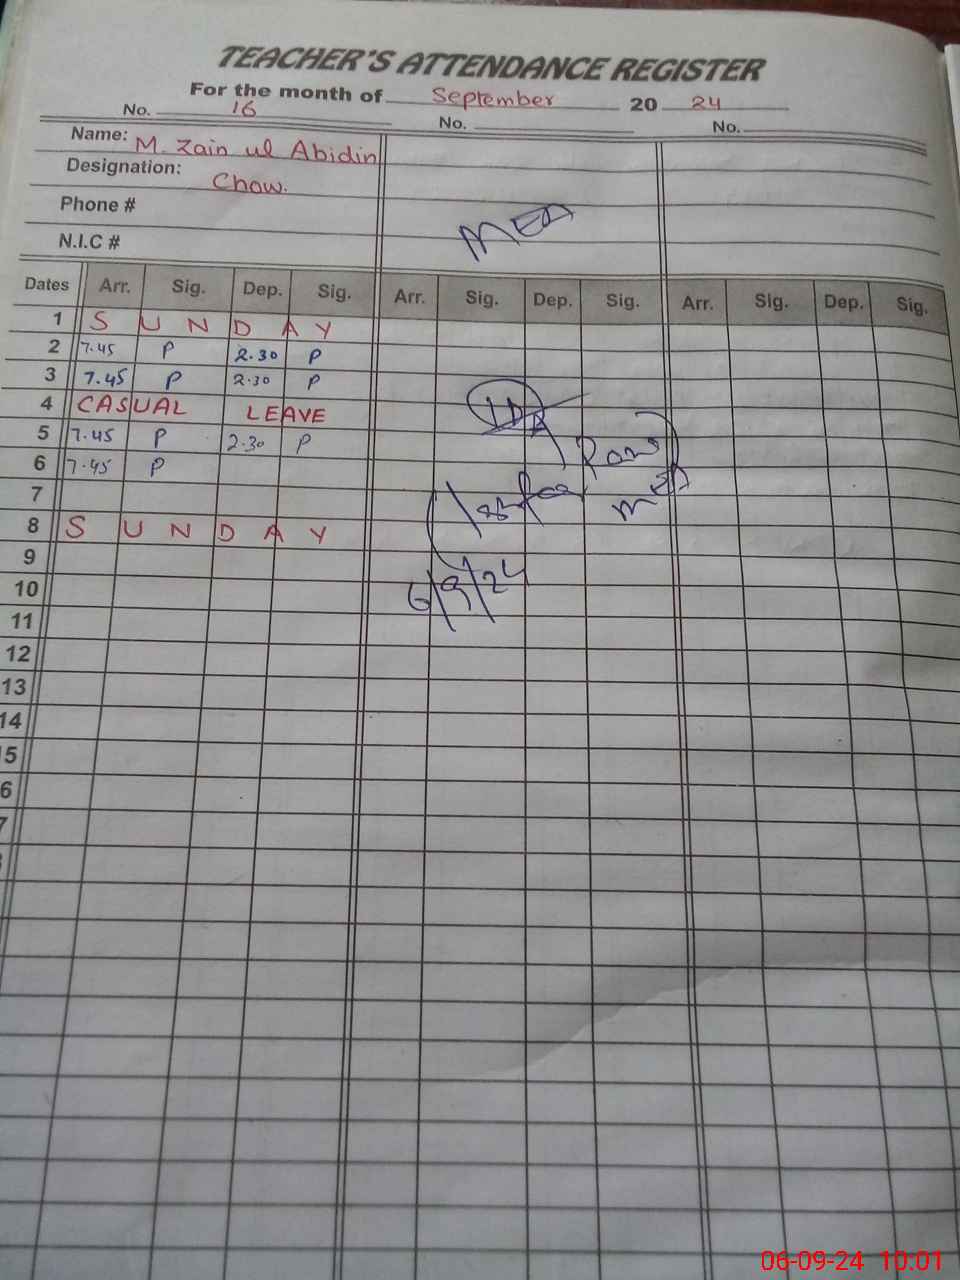 TEACHER'S ATTENDANCE REGISTER
For the month of September 20 24
No. 16 No. No.
Name: M. Zain ul Abidin
Designation: Chow.
Phone #
N.I.C #
MEA
Dates Arr. Sig. Dep. Sig. Arr. Sig. Dep. Sig. Arr. Sig. Dep. Sig.
1 S U N D A Y
2 7.45 P 2.30 P
3 7.45 P 2.30 P
4 CASUAL LEAVE
5 7.45 P 2.30 P
6 7.45 P
7
8 S U N D A Y
9
10
11
12
13
14
5
6
7
MEA
6/9/24
06-09-24 10:01